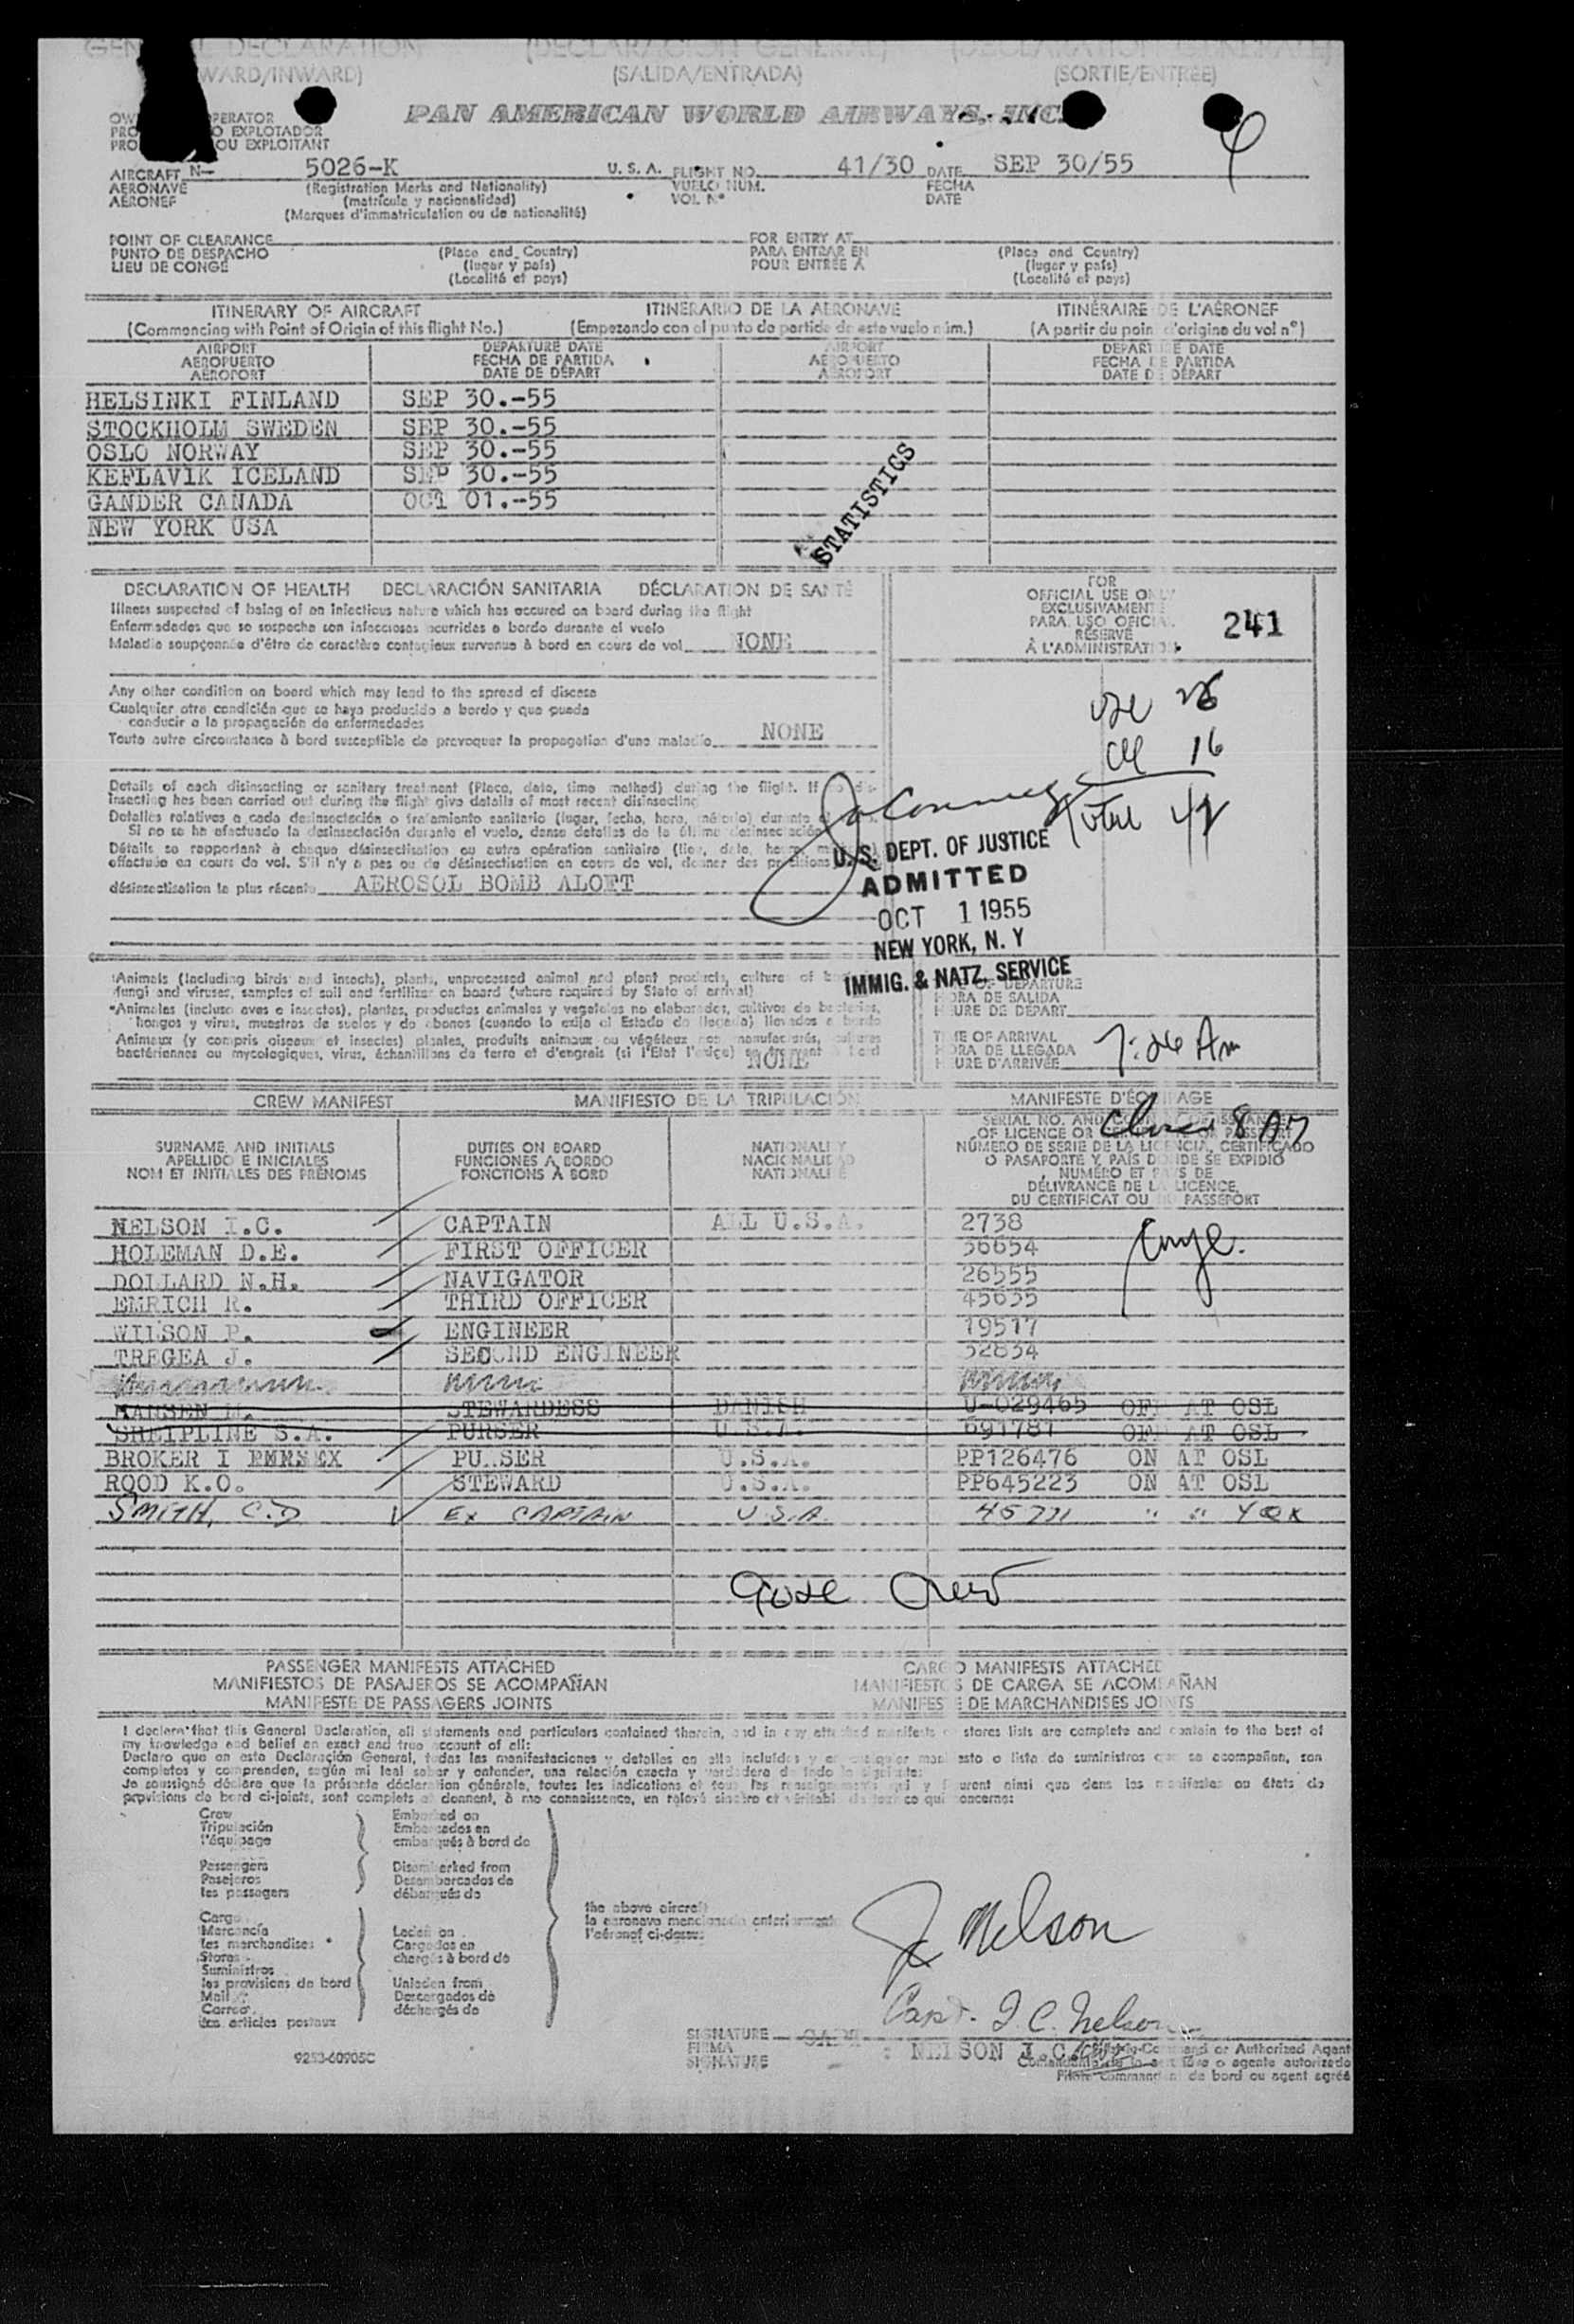 GENERAL DECLARATION (DECLARACION GENERAL) (DECLARATION GENERALE)
WARD/INWARD) (SALIDA/ENTRADA) (SORTIE/ENTRÉE)
PAN AMERICAN WORLD AIRWAYS, INC.
OPERATOR
O EXPLOTADOR
OU EXPLOITANT
AIRCRAFT N- 5026-K U. S. A. FLIGHT NO. 41/30 DATE SEP 30/55
AERONAVE (Registration Marks and Nationality) VUELO NUM. FECHA
AÉRONEF (matrícula y nacionalidad) VOL Nº DATE
(Marques d'immatriculation ou de nationalité)
POINT OF CLEARANCE FOR ENTRY AT
PUNTO DE DESPACHO (Place and Country) PARA ENTRAR EN (Place and Country)
LIEU DE CONGÉ (lugar y país) POUR ENTRÉE À (lugar y país)
(Localité et pays) (Localité et pays)
ITINERARY OF AIRCRAFT ITINERARIO DE LA AERONAVE ITINÉRAIRE DE L'AÉRONEF
(Commencing with Point of Origin of this flight No.) (Empezando con el punto de partida de este vuelo núm.) (A partir du point d'origine du vol nº)
AIRPORT DEPARTURE DATE AIRPORT DEPARTURE DATE
AEROPUERTO FECHA DE PARTIDA AEROPUERTO FECHA DE PARTIDA
AÉROPORT DATE DE DÉPART AÉROPORT DATE DE DÉPART
HELSINKI FINLAND SEP 30.-55
STOCKHOLM SWEDEN SEP 30.-55
OSLO NORWAY SEP 30.-55
KEFLAVIK ICELAND SEP 30.-55
GANDER CANADA OCT 01.-55
NEW YORK USA
STATISTICS
DECLARATION OF HEALTH DECLARACIÓN SANITARIA DÉCLARATION DE SANTÉ
Illness suspected of being of an infectious nature which has occured on board during the flight
Enfermedades que se sospecha son infecciosas ocurridas a bordo durante el vuelo
Maladie soupçonnée d'être de caractère contagieux survenue à bord en cours de vol NONE
FOR
OFFICIAL USE ONLY
EXCLUSIVAMENTE
PARA USO OFICIAL
RÉSERVÉ
À L'ADMINISTRATION
241
Any other condition on board which may lead to the spread of disease
Cualquier otra condición que se haya producido a bordo y que pueda
conducir a la propagación de enfermedades
Toute autre circonstance à bord susceptible de provoquer la propagation d'une maladie NONE
16
Total 42
Details of each disinsecting or sanitary treatment (Place, date, time method) during the flight. If no dis-
insecting has been carried out during the flight give details of most recent disinsecting
Detalles relativos a cada desinsectación o tratamiento sanitario (lugar, fecha, hora, método) durante
Si no se ha efectuado la desinsectación durante el vuelo, dense detalles de la última desinsectación
Détails se rapportant à chaque désinsectisation ou autre opération sanitaire (lieu, date, heure,
effectuée en cours de vol. S'il n'y a pas eu de désinsectisation en cours de vol, donner des précisions
désinsectisation la plus récente AEROSOL BOMB ALOFT
U.S. DEPT. OF JUSTICE
ADMITTED
OCT 1 1955
NEW YORK, N. Y
IMMIG. & NATZ. SERVICE
*Animals (including birds and insects), plants, unprocessed animal and plant products, culture of
fungi and viruses, samples of soil and fertilizer on board (where required by State of arrival)
*Animales (incluso aves e insectos), plantas, productos animales y vegetales no elaborados, cultivos de bacterias,
hongos y virus, muestras de suelos y de abonos (cuando lo exija el Estado de llegada) llevados a bordo
Animaux (y compris oiseaux et insectes) plantes, produits animaux ou végéteux non manufacturés, cultures
bactériennes ou mycologiques, virus, échantillons de terre et d'engrais (si l'Etat l'exige) se trouvant à bord
NONE
OF DEPARTURE
HORA DE SALIDA
HEURE DE DÉPART
TIME OF ARRIVAL
HORA DE LLEGADA 7:26 Am
HEURE D'ARRIVÉE
CREW MANIFEST MANIFIESTO DE LA TRIPULACIÓN MANIFESTE D'ÉQUIPAGE
SURNAME AND INITIALS DUTIES ON BOARD NATIONALITY
APELLIDO E INICIALES FUNCIONES A BORDO NACIONALIDAD
NOM ET INITIALES DES PRÉNOMS FONCTIONS A BORD NATIONALITÉ
NÚMERO DE SERIE DE LA LICENCIA, CERTIFICADO
O PASAPORTE Y PAÍS DONDE SE EXPIDIÓ
NUMÉRO ET PAYS DE
DÉLIVRANCE DE LA LICENCE,
DU CERTIFICAT OU DU PASSEPORT
NELSON I.C. CAPTAIN ALL U.S.A. 2738
HOLEMAN D.E. FIRST OFFICER 36654
DOLLARD N.H. NAVIGATOR 26555
EMRICH R. THIRD OFFICER 45635
WILSON P. ENGINEER 19517
TREGEA J. SECOND ENGINEER 32834
HANSEN M. STEWARDESS DANISH U-029465 OFF AT OSL
SHEIPLINE S.A. PURSER U.S.A. 691781 OFF AT OSL
BROKER I PURSER U.S.A. PP126476 ON AT OSL
ROOD K.O. STEWARD U.S.A. PP645223 ON AT OSL
SMITH, C.D Ex CAPTAIN U.S.A. " " YQX
Crew
PASSENGER MANIFESTS ATTACHED CARGO MANIFESTS ATTACHED
MANIFIESTOS DE PASAJEROS SE ACOMPAÑAN MANIFIESTOS DE CARGA SE ACOMPAÑAN
MANIFESTE DE PASSAGERS JOINTS MANIFESTE DE MARCHANDISES JOINTS
I declare that this General Declaration, all statements and particulars contained therein, and in any attached manifests or stores lists are complete and contain to the best of
my knowledge and belief an exact and true account of all:
Declaro que en esta Declaración General, todas las manifestaciones y detalles en ella incluídos y en cualquier manifiesto o lista de suministros que se acompañan, son
completos y comprenden, según mi leal saber y entender, una relación exacta y verdadera de todo lo siguiente:
Je soussigné déclare que la présente déclaration générale, toutes les indications et tous les renseignements qui y figurent ainsi que dans les manifestes ou états de
provisions de bord ci-joints, sont complets et donnent, à ma connaissance, un relevé sincère et véritable de tout ce qui concerne:
Crew Embarked on
Tripulación Embarcados en
l'équipage embarqués à bord de
Passengers Disembarked from
Pasajeros Desembarcados de
les passagers débarqués de
the above aircraft
la aeronave mencionada anteriormente
l'aéronef ci-dessus
Cargo
Mercancía Laden on
les marchandises Cargados en
Stores chargés à bord de
Suministros
les provisions de bord Unladen from
Mail Descargados de
Correo déchargés de
les articles postaux
Nelson
Capt. I C. Nelson
SIGNATURE CAPT
FIRMA : NELSON I.C.
SIGNATURE
Pilot-in-Command or Authorized Agent
Comandante de la aeronave o agente autorizado
Pilote commandant de bord ou agent agréé
9253-60905C